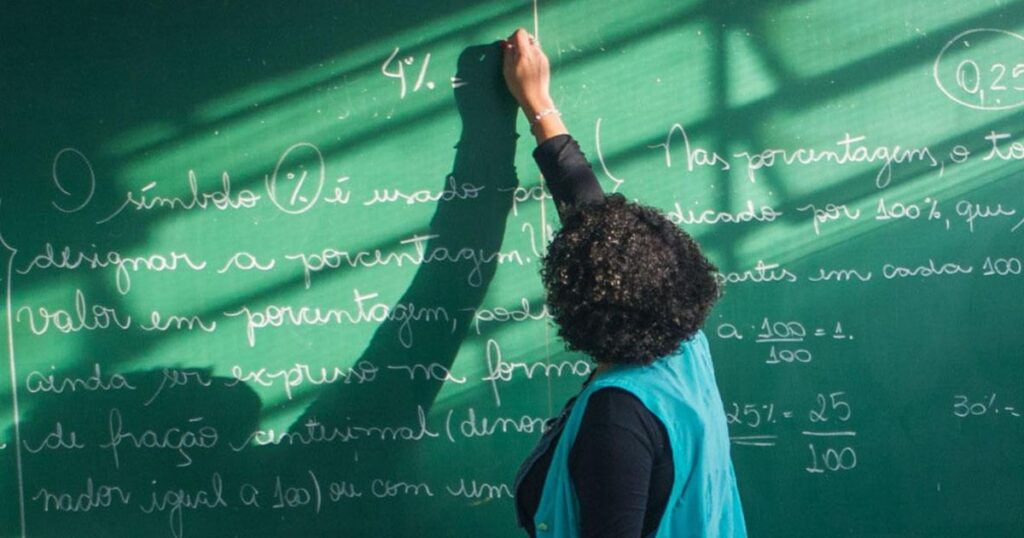 4% =
O símbolo % é usado pa
designar a porcentagem.
valor em porcentagem, pod
ainda ser expresso na forma
de fração centesimal (denomi
nador igual a 100) ou com um
0,25
Nas porcentagem, o to
dicado por 100%, que
partes em cada 100
a 100/100 = 1.
25% = 25/100
30% =